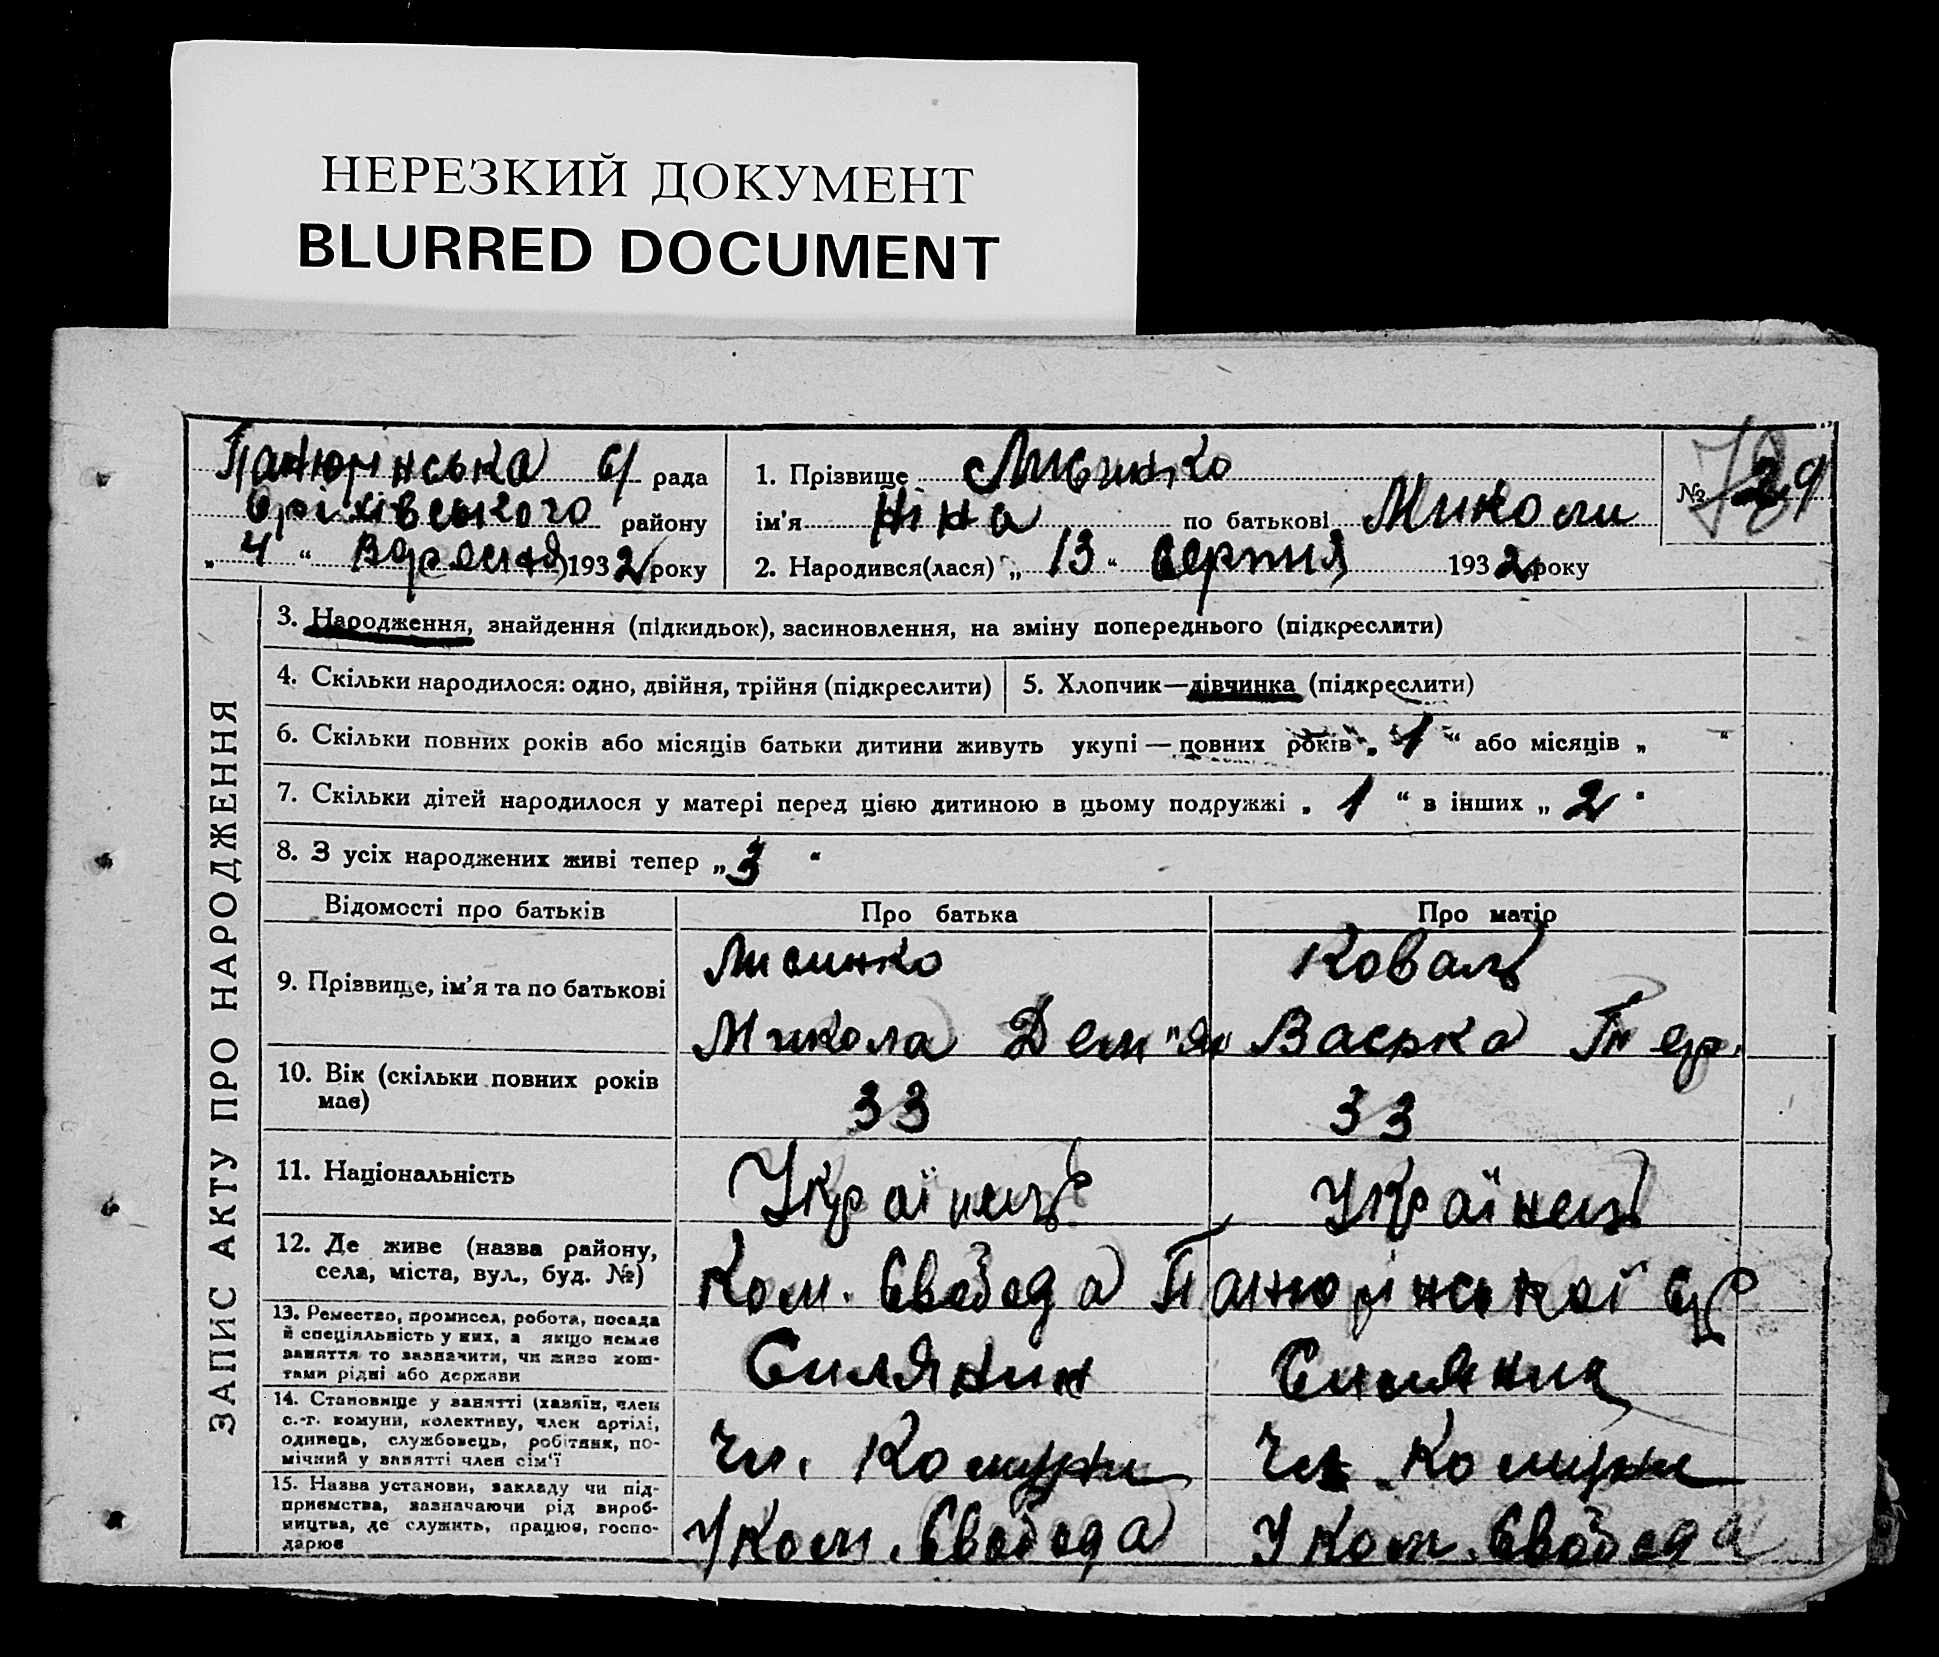 НЕРЕЗКИЙ ДОКУМЕНТ
BLURRED DOCUMENT
ЗАПИС АКТУ ПРО НАРОДЖЕННЯ
с/ рада
Оріхівського району
„ 4 “ Вересня 1932 року
1. Прізвище Лисинко
ім'я Ніна по батькові Миколи
2. Народився(лася) „ 13 “ серпня 1932 року
№ 29
3. Народження, знайдення (підкидьок), засиновлення, на зміну попереднього (підкреслити)
4. Скільки народилося: одно, двійня, трійня (підкреслити)
5. Хлопчик—дівчинка (підкреслити)
6. Скільки повних років або місяців батьки дитини живуть укупі — повних років „ 1 “ або місяців „ “
7. Скільки дітей народилося у матері перед цією дитиною в цьому подружжі „ 1 “ в інших „ 2 “
8. З усіх народжених живі тепер „ 3 “
Відомості про батьків Про батька Про матір
9. Прізвище, ім'я та по батькові
Лисинко
Микола Дем"ян
Коваль
Васька
10. Вік (скільки повних років має)
33 33
11. Національність
Українець Українець
12. Де живе (назва району,
села, міста, вул., буд. №)
Ком. Свобода
13. Ремество, промисел, робота, посада
й спеціяльність у них, а якщо немає
заняття то зазначити, чи живе кош-
тами рідні або держави
Силянин Силянин
14. Становище у занятті (хазяїн, член
с.-г. комуни, колективу, член артілі,
одинець, службовець, робітник, по-
мічний у занятті член сім'ї
Чл. Комуни Чл. Комуни
15. Назва установи, закладу чи під-
приємства, зазначаючи рід вироб-
ництва, де служить, працює, госпо-
дарює
У Ком. Свобода У Ком. Свобода